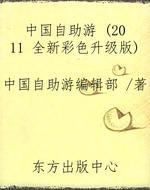 中国自助游 (20
11 全新彩色升级版)
中国自助游编辑部 /著
东方出版中心